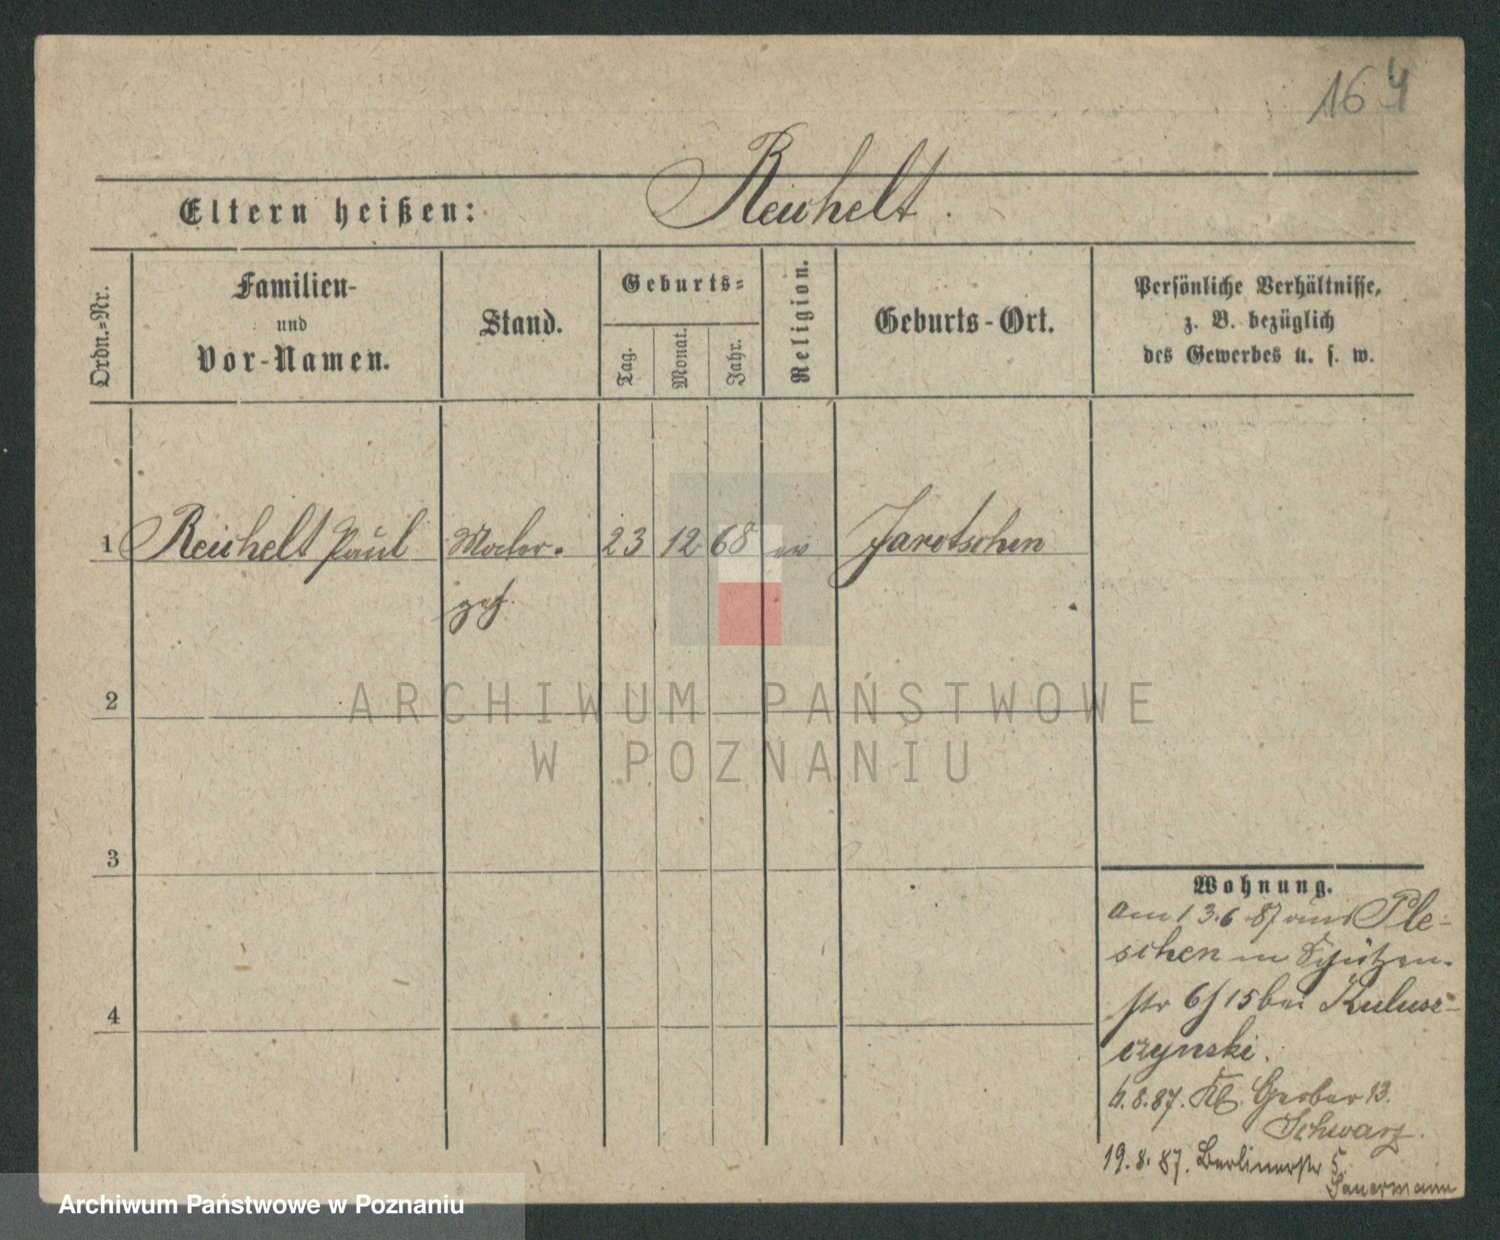 164
Reichelt.
Eltern heißen:
Ordn.=Nr.
Familien-
und
Vor-Namen.
Stand.
Geburts=
Tag.
Monat.
Jahr.
Religion.
Geburts-Ort.
Persönliche Verhältnisse,
z. B. bezüglich
des Gewerbes u. s. w.
1 Reichelt Paul Maler- 23 12 68 ev Jarotschin
2
ARCHIWUM PAŃSTWOWE
W POZNANIU
3
Wohnung.
am 13.6.87 aus Ple-
schen in Schützen-
str 6/15 bei
czynski.
6.8.87. Kl. Gerber 13.
Schwarz.
4
19.8.87. Berlinerstr 5.
Sauermann
Archiwum Państwowe w Poznaniu